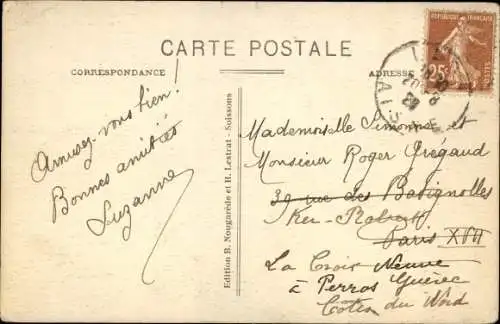 CARTE POSTALE
CORRESPONDANCE
ADRESSE
REPUBLIQUE FRANÇAISE
25c
POSTES
AISNE
Amusez-vous bien !
Bonnes amitiés
Suzanne
Edition B. Nougarède et R. Lestrat - Soissons
Mademoiselle Simonne et
Monsieur Roger Grégaud
39 rue des Batignolles
Ker-Robert
Paris XVII
La Croix Neuve
à Perros Guirec
Côtes du Nord